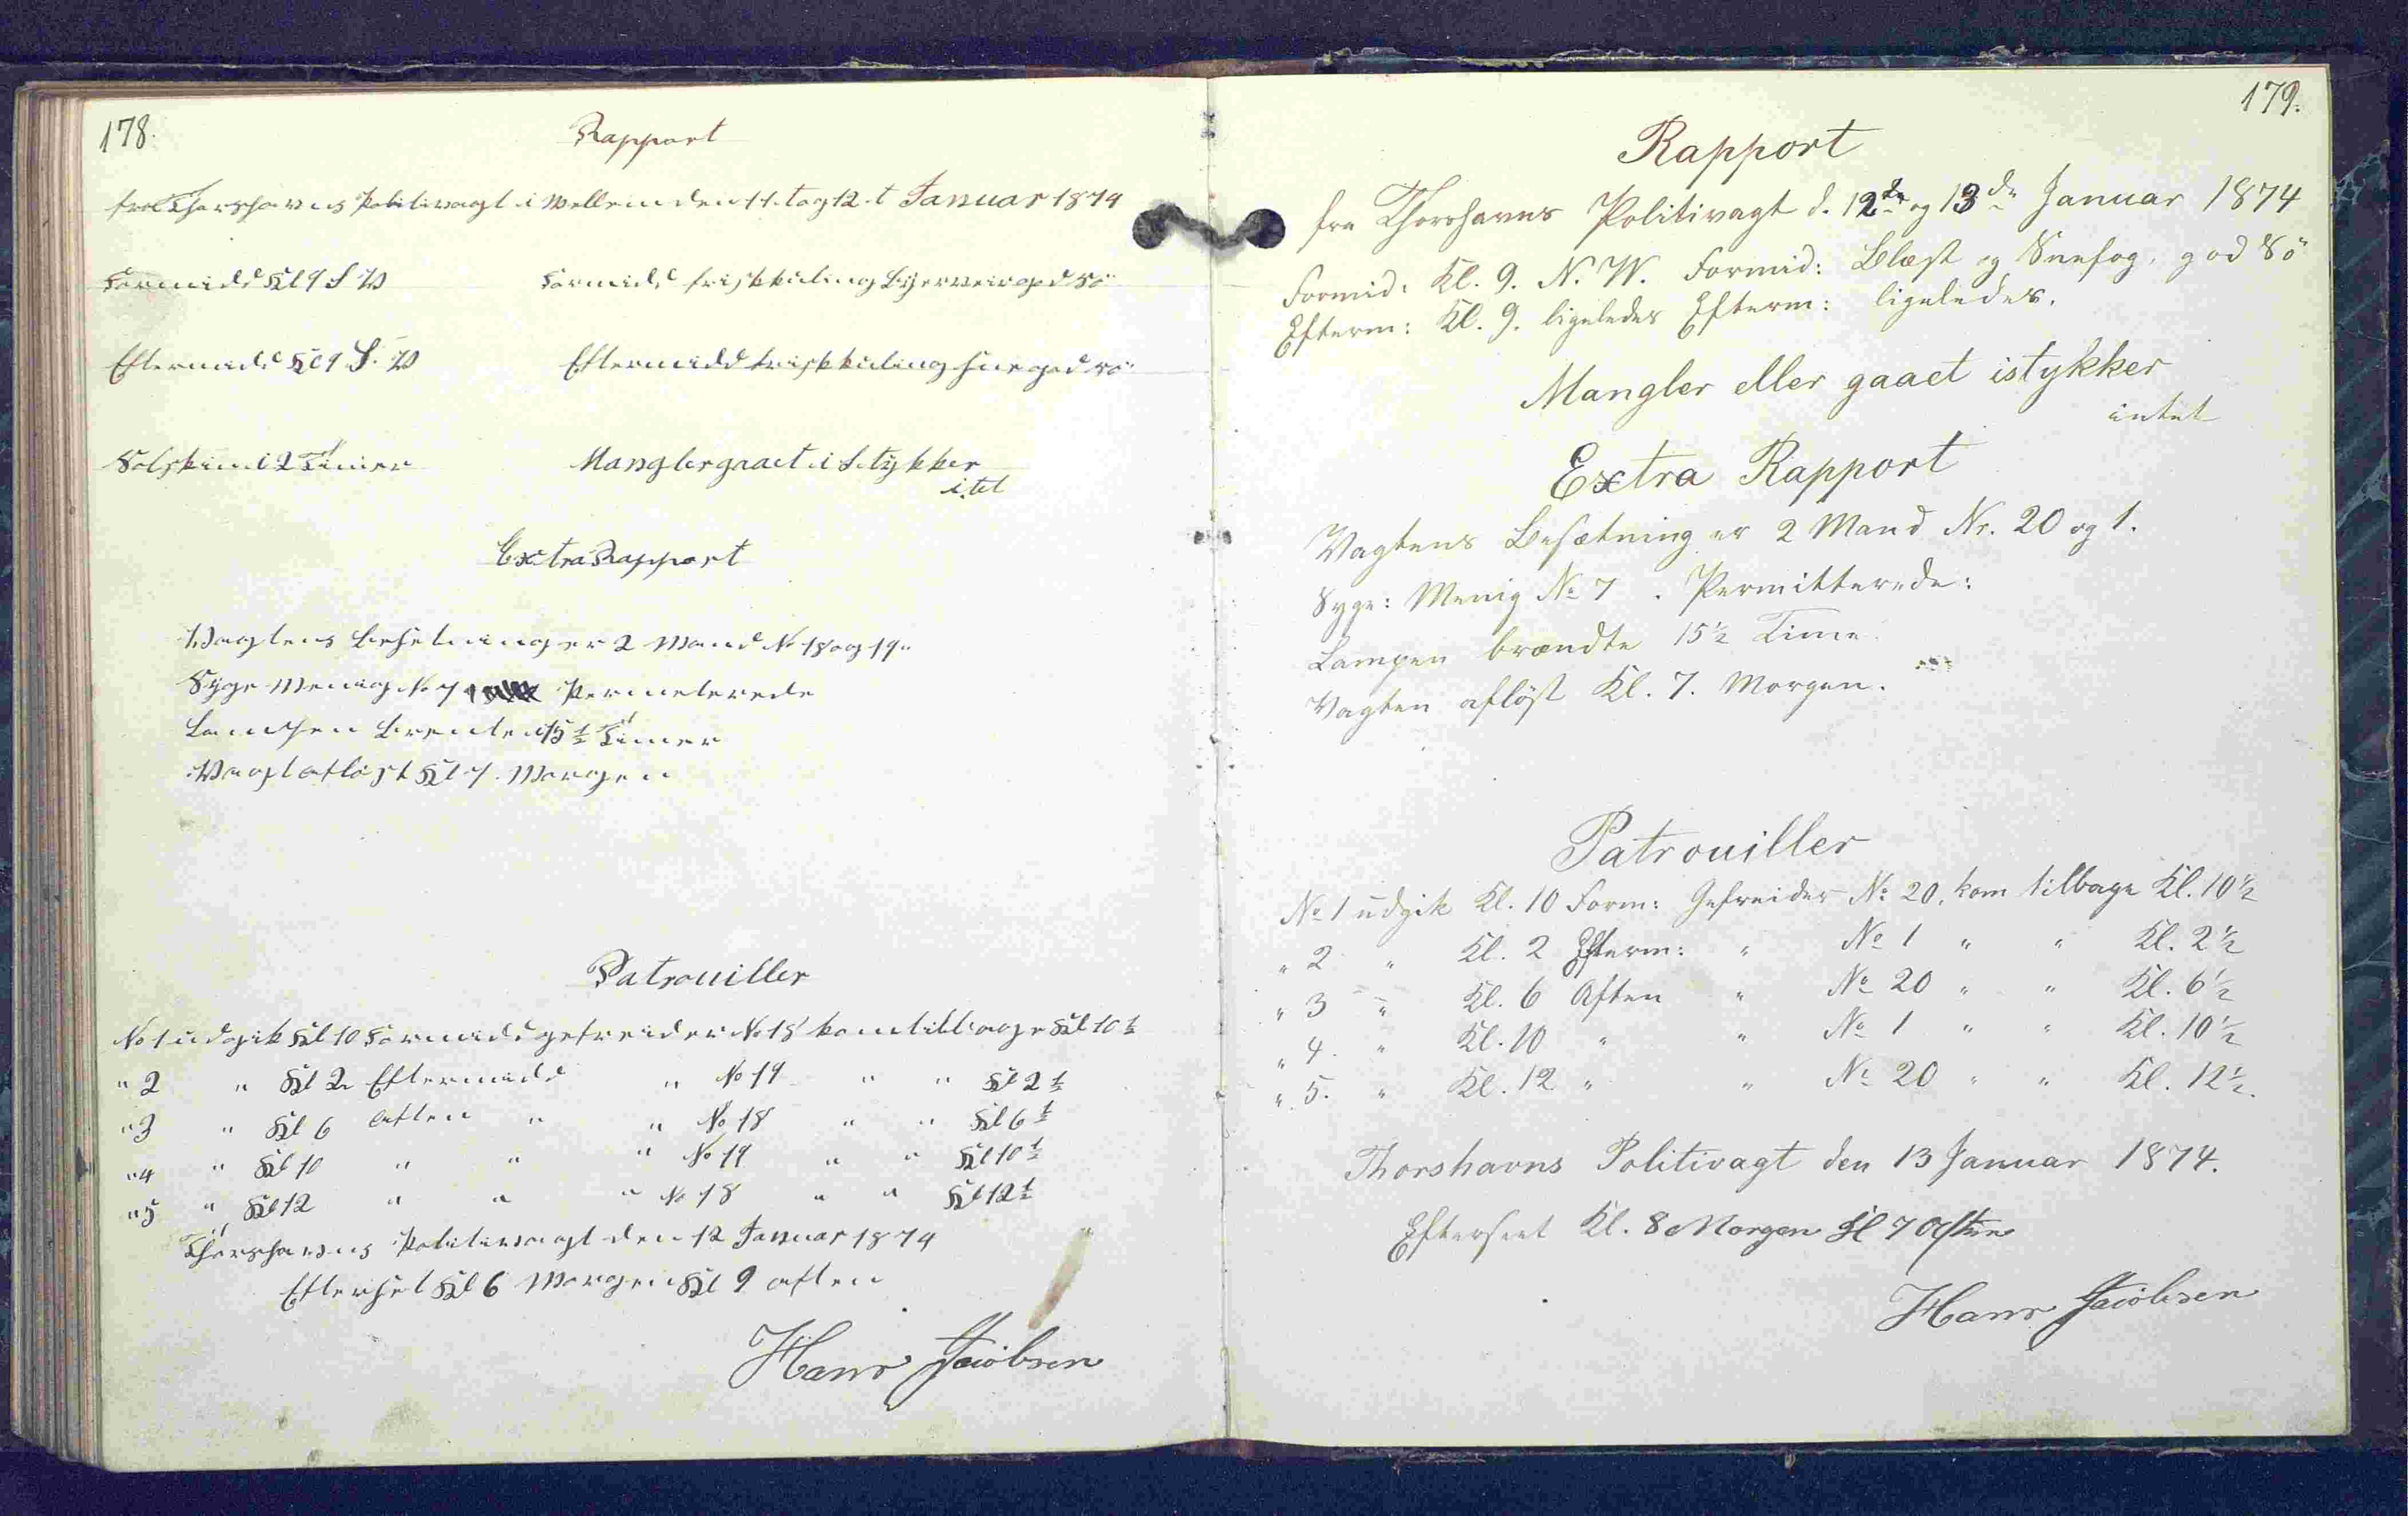 178.
Rapport
fra Thorshavns Politivagt i Mellem den 11.t og 12.t Januar 1874
Formidd Kl 9 S W Formidd friskkuling Byerveir god Sö
Eftermidd Kl 9 S. W Eftermidd friskkuling Sne god Sö
Solskin i 2 Timer Mangler gaaet i Stykker
itet
Extra Rapport
Vagtens Besetning er 2 Mand No 18 og 19"
Syge Menig No 7 Permeterede
Lampen Brente 15½ Timer
Vagt aflöst Kl 7. Morgen
Patrouiller
No 1 udgik Kl 10 Formidd gefreider No 18 kom tilbage Kl 10½
" 2 " Kl 2 Eftermidd " No 19 " " Kl 2½
" 3 " Kl 6 aften " " No 18 " " Kl 6½
" 4 " Kl 10 " " " No 19 " " Kl 10½
" 5 " Kl 12 " " " No 18 " " Kl 12½
Thorshavns Politivagt den 12 Januar 1874
Efterset Kl 6 Morgen Kl 9 aften
Hans Jacobsen
179.
Rapport
fra Thorshavns Politivagt d. 12te og 13de Januar 1874
Formid: Kl. 9. N. W. Formid: Blæst og Snefog, god Sö
Efterm: Kl. 9. ligeledes Efterm: ligeledes.
Mangler eller gaaet istykker
intet
Extra Rapport
Vagtens Besætning er 2 Mand Nr. 20 og 1.
Syge: Menig No 7. Permitterede:
Lampen brændte 15½ Time.
Vagten aflöst Kl. 7. Morgen.
Patrouiller
No 1 udgik Kl. 10 Form: Gefreider No 20. kom tilbage Kl. 10½
" 2 " Kl. 2 Efterm: " No 1 " " Kl. 2½
" 3 " Kl. 6 Aften " No 20 " " Kl. 6½
" 4. " Kl. 10 " " No 1 " " Kl. 10½
" 5. " Kl. 12 " " No 20 " " Kl. 12½.
Thorshavns Politivagt den 13 Januar 1874.
Efterseet Kl. 8 Morgen Kl 7 Aften
Hans Jacobsen